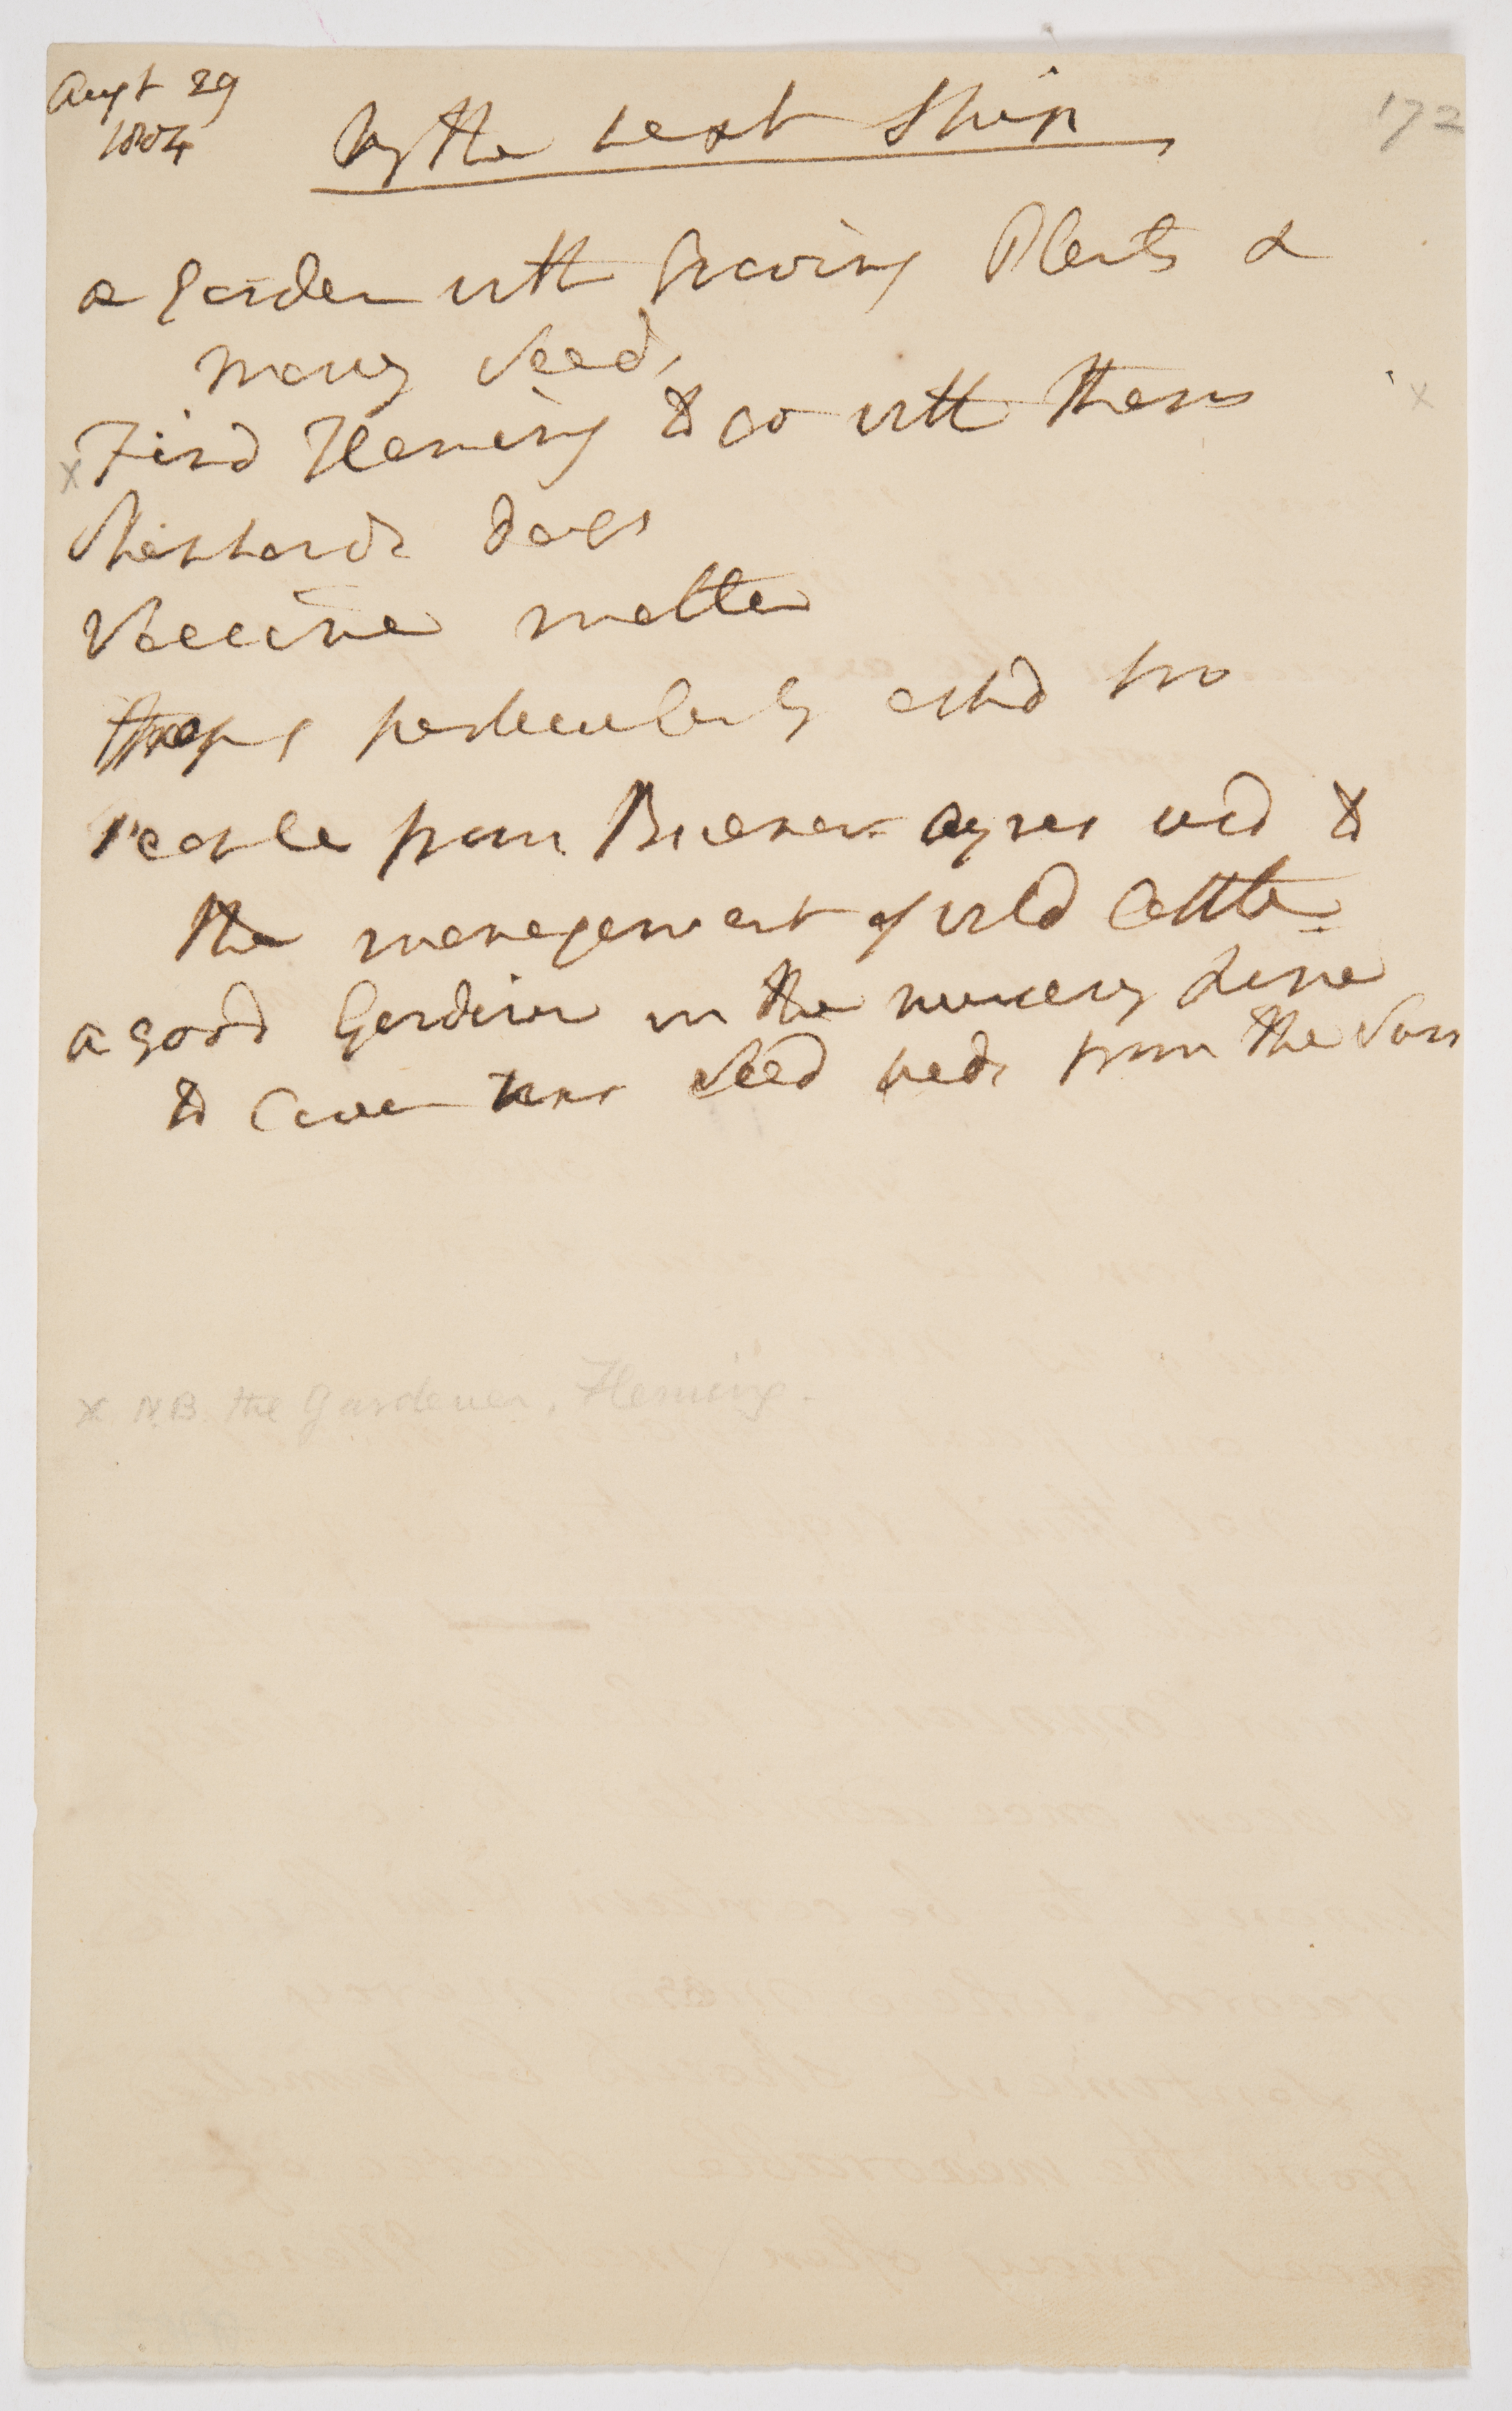 Augt 29
1804
172
by the next Ship
a garden with growing Plants &
many Seeds
Find Fleming to go with them
Shepherds dogs
Vaccine matter
Hops particularly askd for
People from Buenos ayres usd to
the management of wild Cattle
a good Gardiner in the nursery Line
to Cover his Seed beds from the Sun
x N.B. the Gardener, Fleming.